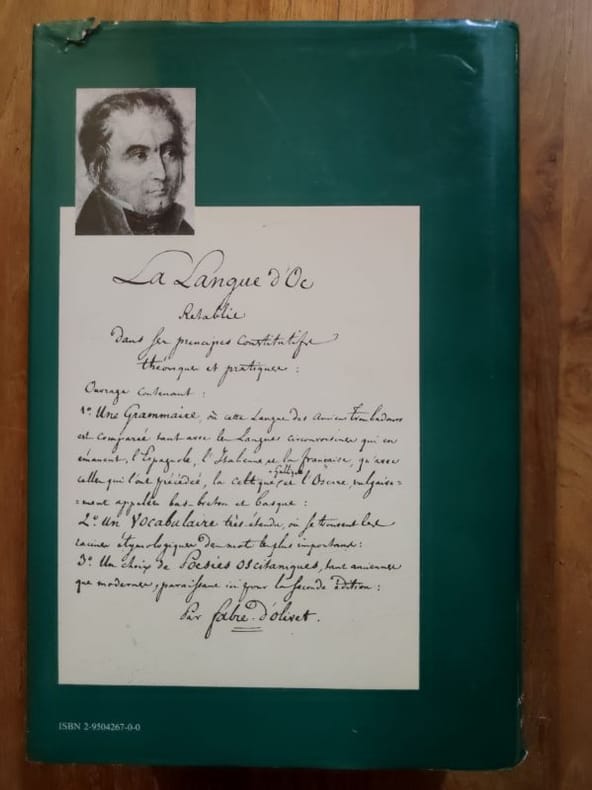 La Langue d'Oc
Rétablie
Dans ses principes Constitutifs
théoriques et pratiques :
Ouvrage contenant :
1º. Une Grammaire, où cette Langue des Anciens Troubadours
est comparée tant avec les Langues circonvoisines qui en
émanent, l'Espagnole, l'Italienne et la française, qu'avec
celles qui l'ont précédé, la celtique, et l'Oscine, vulgaire=
=ment appelées bas-breton et basque :
2º. un Vocabulaire très étendu, où se trouvent les
racines étymologiques des mots les plus importans :
3º. Un choix de Poésies oscitaniques, tant anciennes
que modernes, paraissant ici pour la seconde édition :
Par fabre-d'olivet.
ISBN 2-9504267-0-0